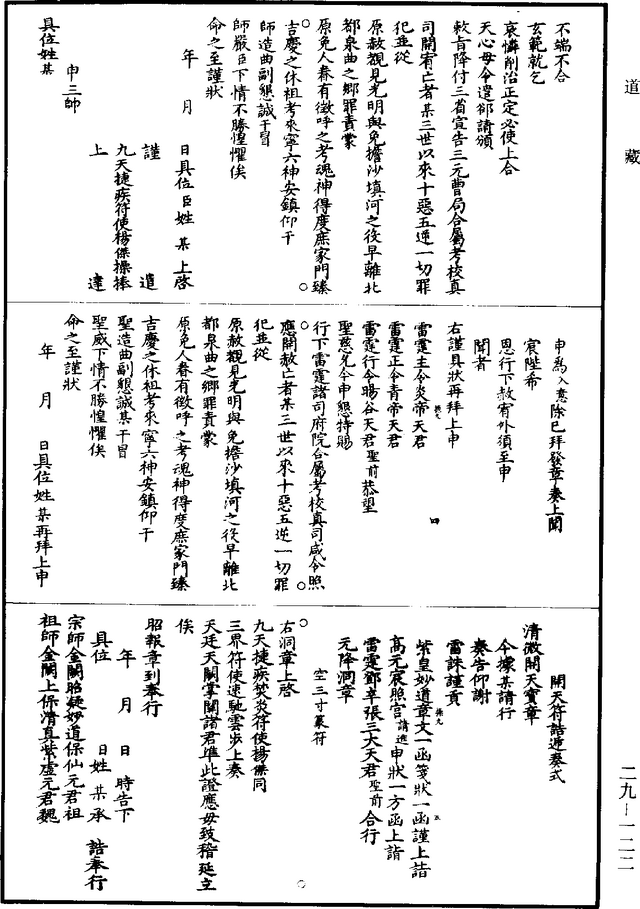 道藏
不端不合
玄範就乞
哀憐削治正定必使上合
天心毋令遣卻請頒
敕旨降付三省宣告三元曹局合屬考校真
司開宥亡者某三世以來十惡五逆一切罪
犯並從
原赦覩見光明與免擔沙填河之役早離北
都泉曲之鄉罪責蒙
原免人眷有徵呼之考魂神得度庶家門臻
吉慶之休祖考來寧六神安鎮仰干
師造曲副懇誠干冒
師嚴臣下情不勝惶懼俟
命之至謹狀
年 月 日具位臣姓某上啓
謹遣
九天捷疾符使楊傑操捧
上達
申三帥
具位姓某
申為入意除已拜發章奏上聞
宸陛希
恩行下赦宥外須至申
聞者
右謹具狀再拜上申
雷霆主令炎帝天君
雷霆正令青帝天君
雷霆行令暘谷天君聖前恭望
聖慈允今申懇特賜
行下雷霆諸司府院合屬考校真司咸令照
應開赦亡者某三世以來十惡五逆一切罪
犯並從
原赦覩見光明與免擔沙填河之役早離北
都泉曲之鄉罪責蒙
原免人眷有徵呼之考魂神得度庶家門臻
吉慶之休祖考來寧六神安鎮仰干
聖造曲副懇誠某干冒
聖威下情不勝惶懼俟
命之至謹狀
年 月 日具位姓某再拜上申
開天符誥遞奏式
清微開天寶章
今據某請行
奏告仰謝
雷誅謹貢
紫皇妙道章文一函箋狀一函謹上詣
高元宸照宮請進申狀一方函上詣
雷霆鄧辛張三大天君聖前合行
元降洞章
空三寸篆符
右洞章上啓
九天捷疾焚炎符使楊傑同
三界符使速馳雲步上奏
天廷天關掌闢諸君準此證應毋致稽延立
俟
昭報章到奉行
年 月 日 時告下
具位 姓某承誥奉行
宗師金闕昭凝妙道保仙元君祖
祖師金闕上保清真紫虛元君魏
二九—一二二